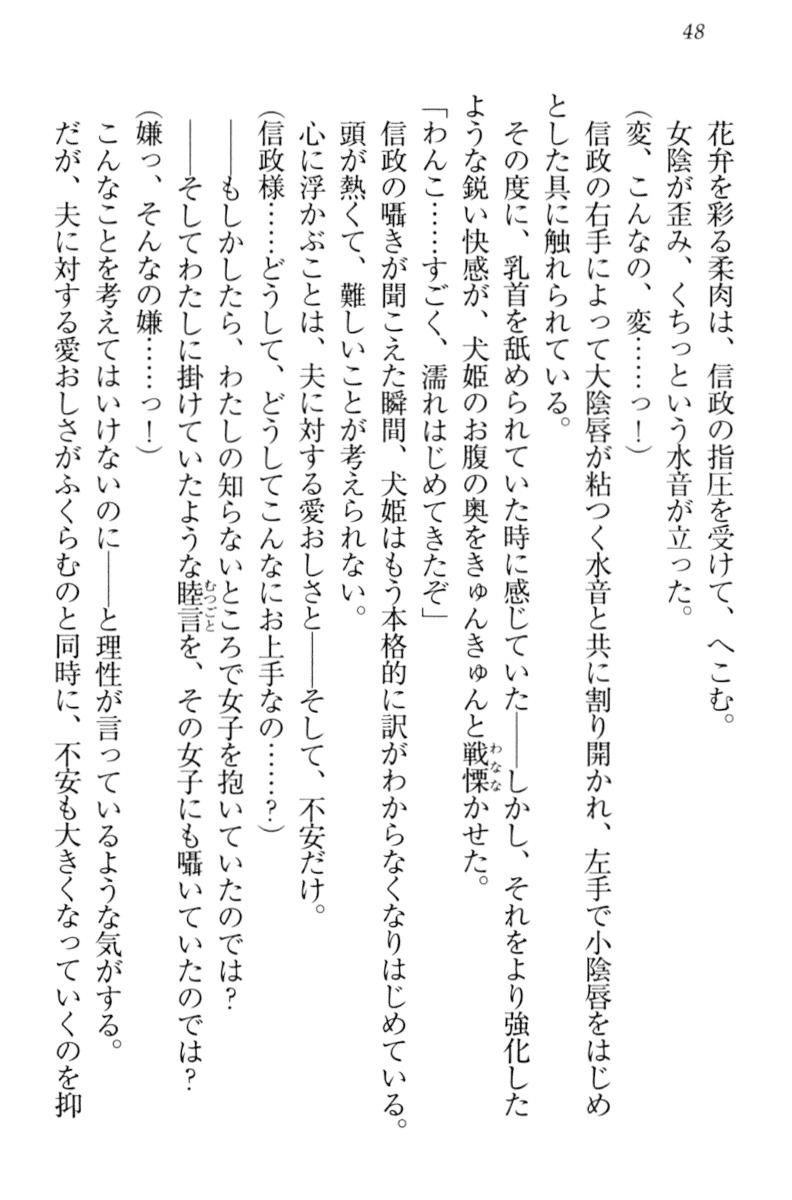 48
花弁を彩る柔肉は、信政の指圧を受けて、へこむ。
女陰が歪み、くちっという水音が立った。
(変、こんなの、変……っ！)
信政の右手によって大陰唇が粘つく水音と共に割り開かれ、左手で小陰唇をはじめ
とした具に触れられている。
その度に、乳首を舐められていた時に感じていた――しかし、それをより強化した
ような鋭い快感が、犬姫のお腹の奥をきゅんきゅんと戦慄かせた。
「わんこ……すごく、濡れはじめてきたぞ」
信政の囁きが聞こえた瞬間、犬姫はもう本格的に訳がわからなくなりはじめている。
頭が熱くて、難しいことが考えられない。
心に浮かぶことは、夫に対する愛おしさと――そして、不安だけ。
(信政様……どうして、どうしてこんなにお上手なの……？)
――もしかしたら、わたしの知らないところで女子を抱いていたのでは？
――そしてわたしに掛けていたような睦言を、その女子にも囁いていたのでは？
(嫌っ、そんなの嫌……っ！)
こんなことを考えてはいけないのに――と理性が言っているような気がする。
だが、夫に対する愛おしさがふくらむのと同時に、不安も大きくなっていくのを抑